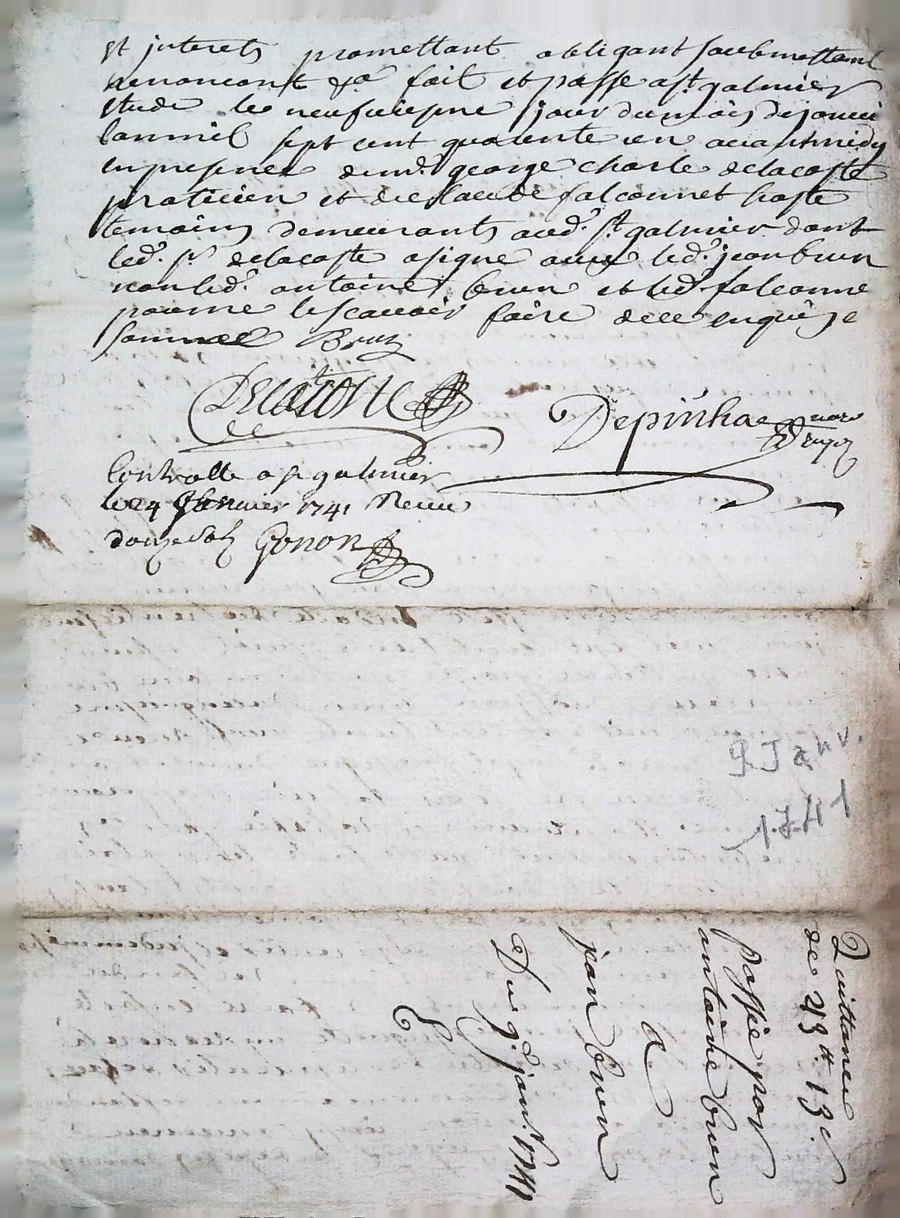 et interets promettant obligant soubmettant
renoncant &a fait et passé a st galmier
etude le neufviesme jour du mois de janvi
lan mil sept cent quarente un avant midy
en presence de mr. george charle delacoste
praticien et de claude falconnet hoste
temoins demeurants aud. st. galmier dont
led. sr. delacoste a signé avec led. jean brun
non led. antoine brun et led. falconne
pour ne le scavoir faire de ce enquis et
sommé Brun
Delacoste Depinhac
Controllé a st galmier
le 24 Janvier 1741 Receu
douze sols Gonon
9. Janv.
1741
Quittance
de 213 tt 13 s
passée par
antoine brun
a
jean brun
Du 9. janr. 1741